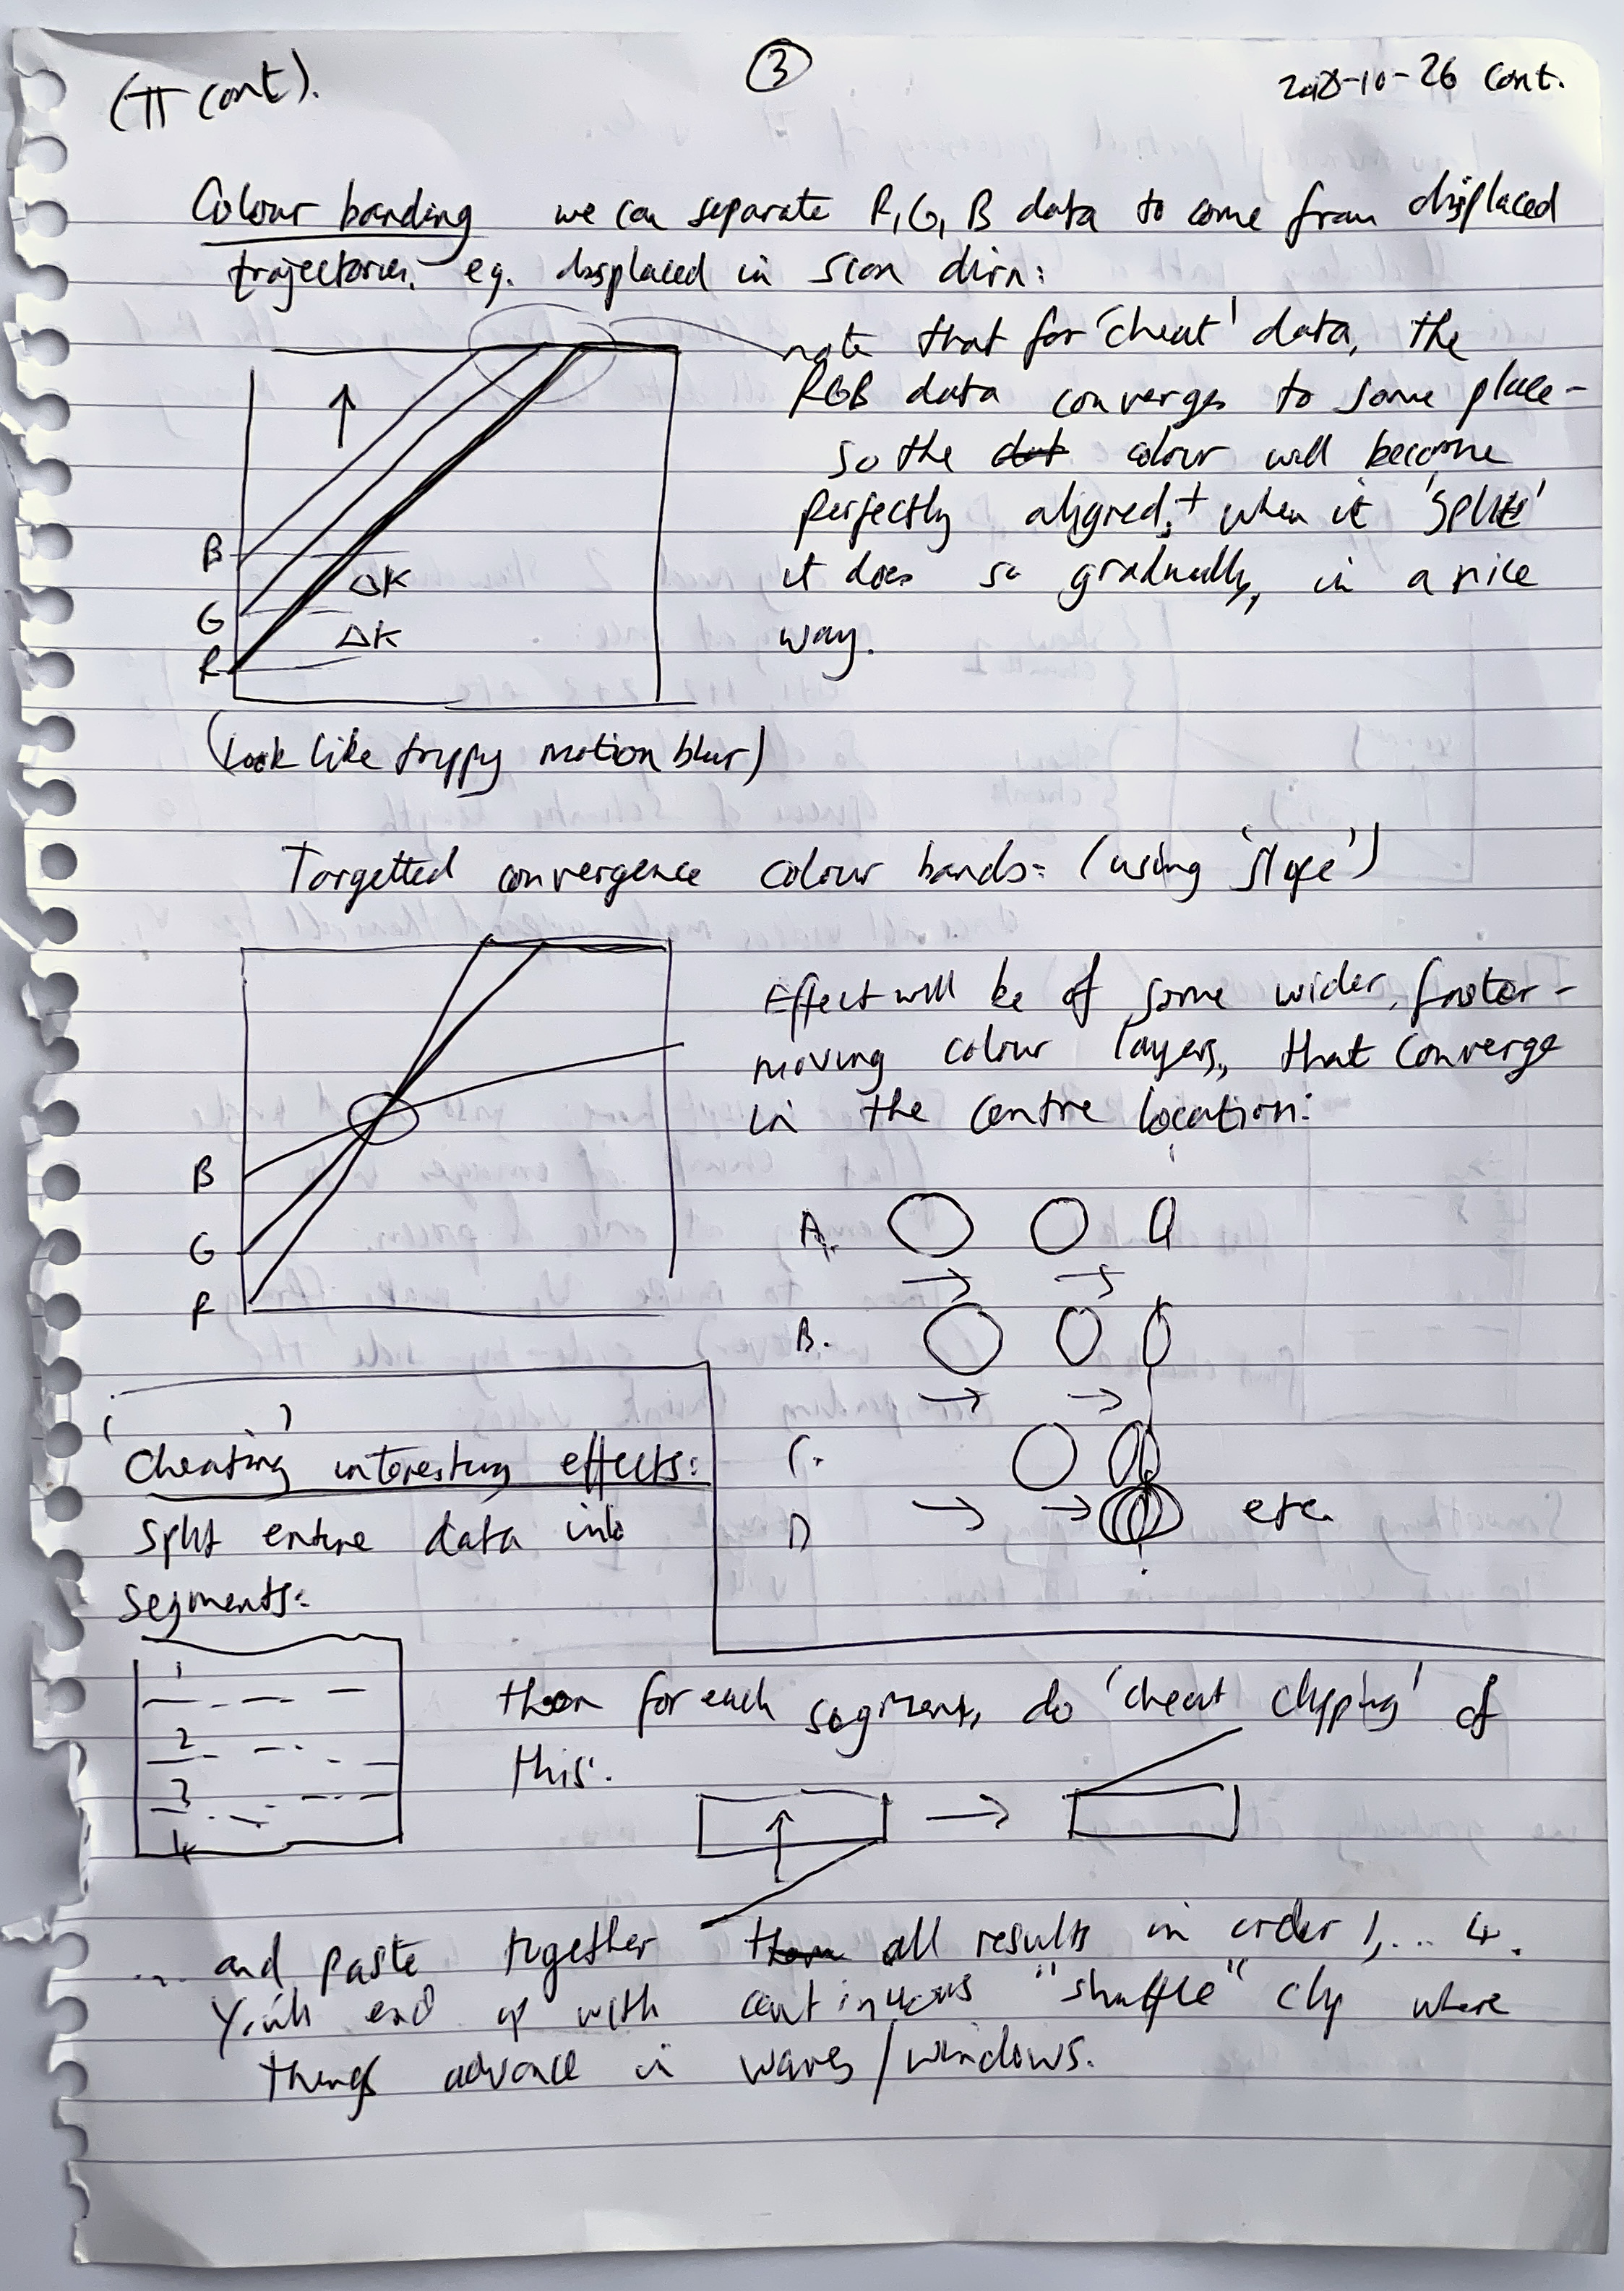 (π cont).
3
2018-10-26 cont.
Colour banding we can separate R,G,B data to come from displaced
trajectories, eg. displaced in scan dirn:
note that for 'cheat' data, the
RGB data converges to same place -
so the dat colour will become
perfectly aligned, + when it 'splits'
it does so gradually, in a nice
way.
B
ΔK
G
ΔK
R
(look like trippy motion blur)
Targetted convergence colour bands: (using 'slope')
Effect will be of some wider, faster-
moving colour layers, that converge
in the centre location:
B
G
R
A.
B.
C.
D
etc.
'Cheating' interesting effects:
split entire data into
segments:
1
2
3
4
then for each segment, do 'cheat clipping' of
this:
... and paste together them all results in order 1,... 4.
You'll end up with continuous "shuffle" clip where
things advance in waves/windows.